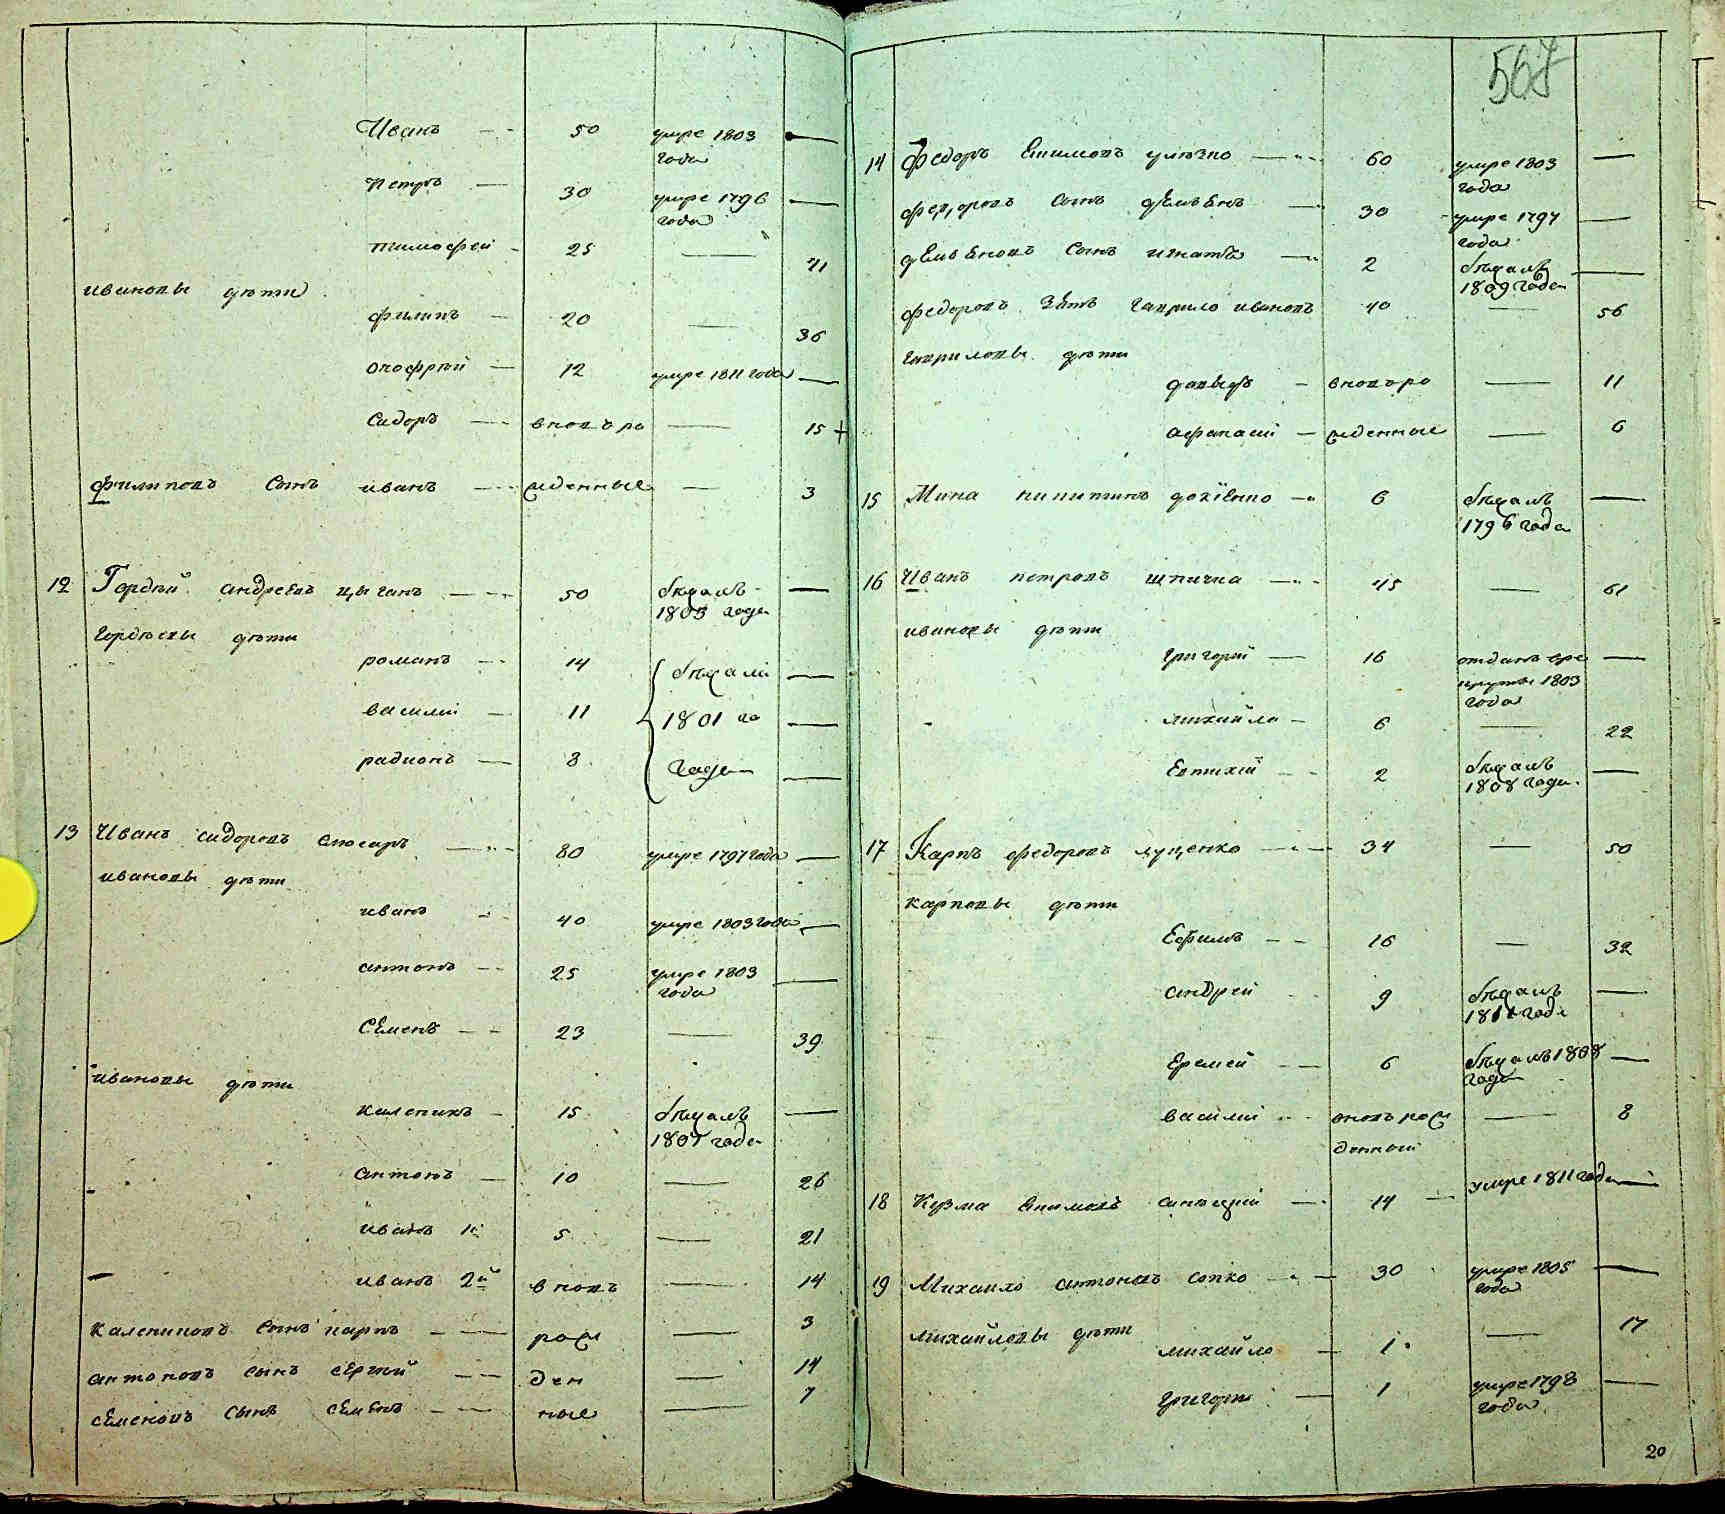 Иванъ 50 умре 1803
года
петръ 30 умре 1796
года
тимофей 25 41
ивановы дѣти
филипъ 20 36
онофрей 12 умре 1811 года
сидоръ вновьро 15
филиповъ сынъ иванъ жденные 3
12 Гордѣй андреевъ цыганъ 50 бѣжалъ
1803 года
гордѣевы дѣти
романъ 14 бѣжали
василий 11 1801 го
радионъ 8 года
13 Иванъ сидоровъ слюсарь 80 умре 1797 года
ивановы дѣти
иванъ 40 умре 1803 года
антонъ 25 умре 1803
года
семенъ 23 39
ивановы дѣти
каленикъ 15 бѣжалъ
года
антонъ 10 26
иванъ 1й 5 21
иванъ 2й вновь 14
калениковъ сынъ карпъ рож 3
антоновъ сынъ сергѣй ден 14
семеновъ сынъ семенъ ные 7
567
14 федоръ Екимовъ 60 умре 1803
года
федоровъ сынъ демьенъ 30 умре 1797
года
демьеновъ сынъ игнатъ 2 бѣжалъ
1809 года
федоровъ зеть гаврило ивановъ 40 56
гавриловы дѣти
давыдъ вновьро 11
афанасий жденные 6
15 Мина никитинъ 6 бѣжалъ
1796 года
16 Иванъ петровъ шпичка 45 61
ивановы дѣти
григорий 16 отданъ вре
круты 1803
года
михайло 6 22
Евтихий 2 бѣжалъ
1808 года
17 Карпъ федоровъ луценко 34 50
карповы дѣти
Ефимъ 16 32
андрей 9 бѣжалъ
года
Еремей 6 бѣжалъ 1808
года
василий вновь рож 8
денный
18 Кузма Екимовъ 14 умре 1811 года
19 Михаило антоновъ сопко 30 умре 1805
года
михайловы дѣти
михайло 1 17
григорий 1 умре 1798
года
20